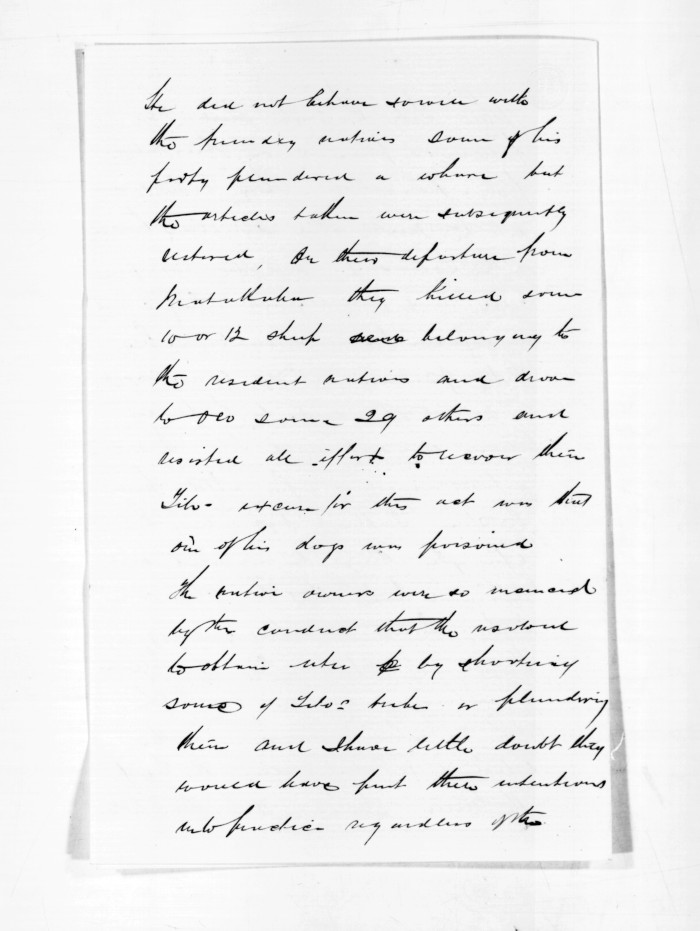 He did not behave so well with
the friendly natives some of his
party plundered a whare but
the articles taken were subsequently
restored, On their departure from
they killed some
10 or 12 sheep belonging to
the resident natives and drove
to some 29 others and
resisted all effort to recover them
Tito's excuse for this act was that
one of his dogs was poisoned
The native owners were so
by the conduct that the
to obtain utu by shooting
some of Tito's tribe or plundering
them and I have little doubt they
would have put their intentions
into practice regardless of the